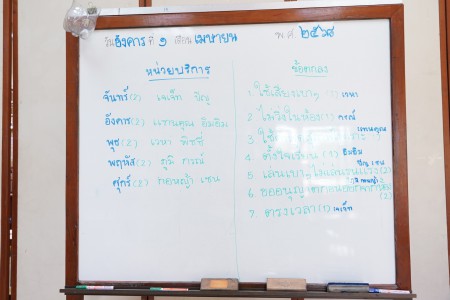 วันอังคาร ที่ ๑ เดือน เมษายน พ.ศ. ๒๕๖๘
หน่วยบริการ
จันทร์(2) เจเจ็ท
อังคาร(2) แทนคุณ อิมอิม
พุธ(2) เวหา มิชชี่
พฤหัส(2) ภูมิ กรณ์
ศุกร์(2) กอหญ้า เซน
ข้อตกลง
1. ใช้เสียงเบาๆ (1) เวหา
2. ไม่วิ่งในห้อง (1) กรณ์
3. ใช้ แทนคุณ
4. ตั้งใจเรียน (1) อิมอิม
5. เล่นเบาๆ ไม่เล่นรุนแรง (2) เซน
6. ขออนุญาต (2)
7. ตรงเวลา (1) เจเจ็ท